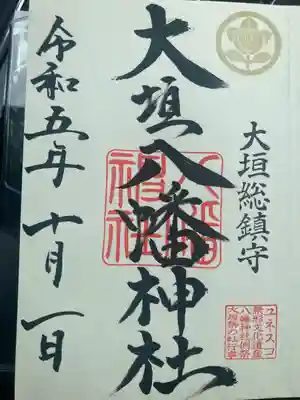 大垣総鎮守
大垣八幡神社
八幡
神社
令和五年十月一日
ユネスコ
無形文化遺産
八幡神社例祭
大垣祭の軕行事